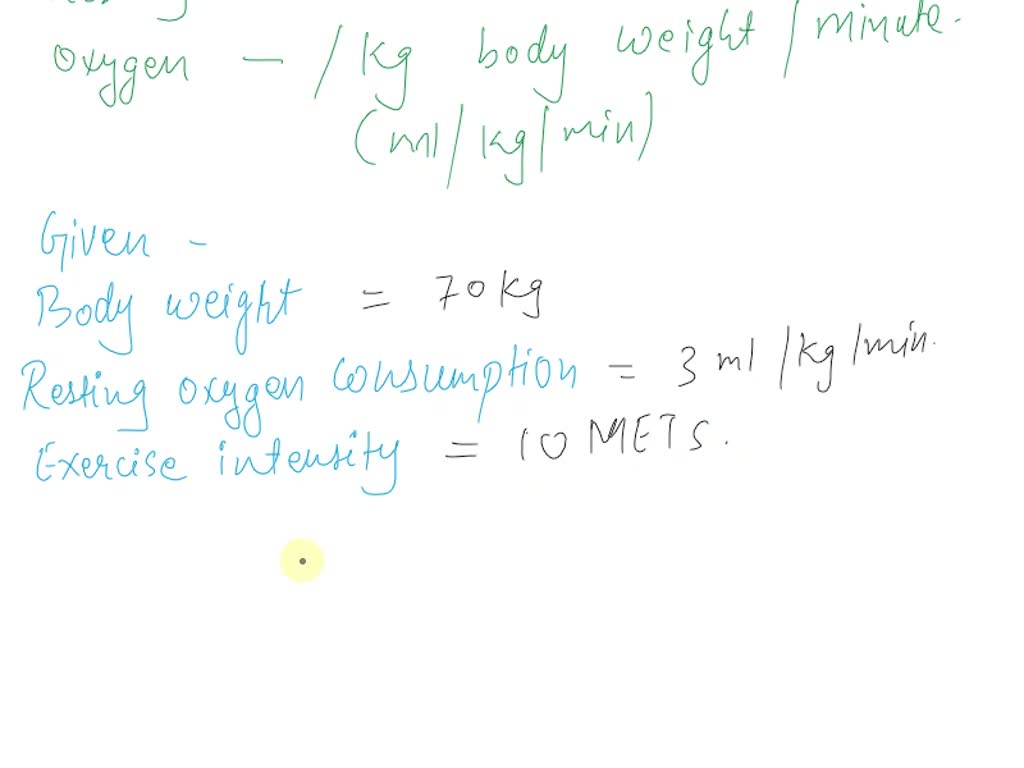 oxygen - / kg body weight / minute.
(ml/kg/min)
Given -
Body weight = 70 kg
Resting oxygen consumption = 3 ml /kg /min.
Exercise intensity = 10 METS.